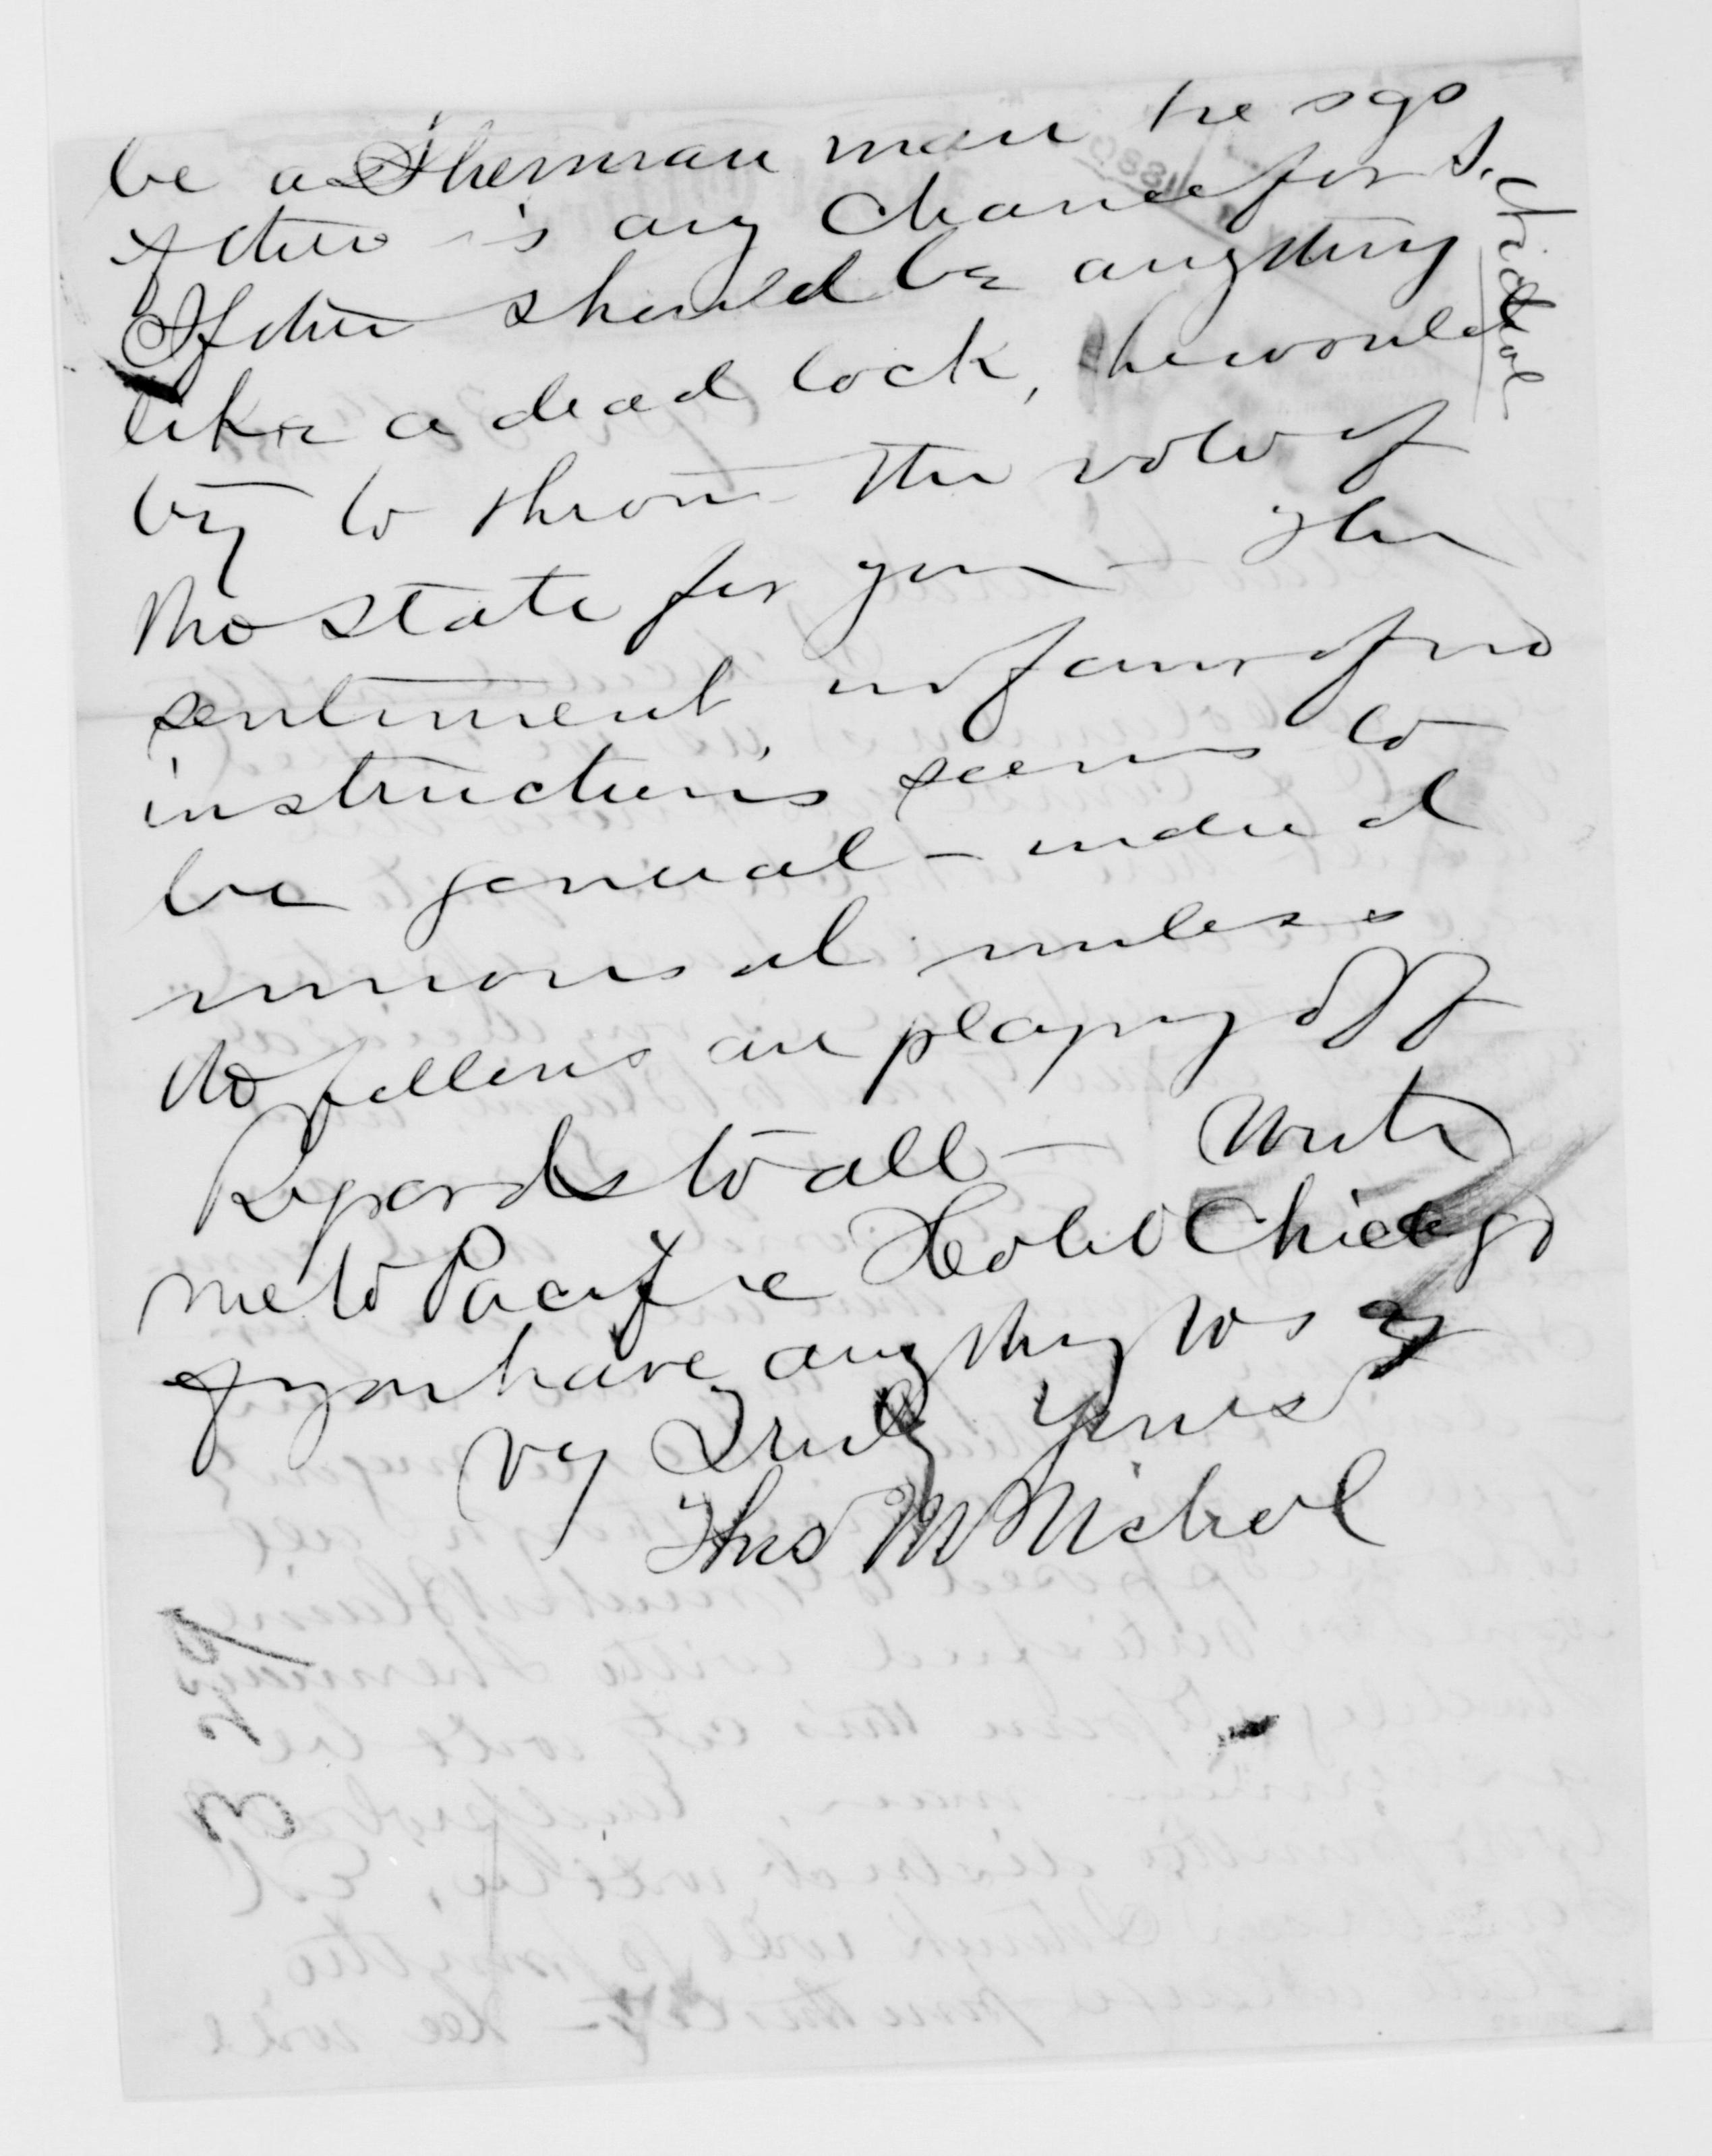 be a Sherman man he says
if there is any chance for S.
If there should be anything
like a dead lock, he would
try to throw the vote of
the State for you – The
sentiment, in favor of no
instructions seems to
be general – indeed
universal unless
the fellows are playing off
Regards to all – Write
me to Pacific Hotel Chicago
if you have anything to say
Vy Truly Yours
Thos M Nichol
Nichol
329